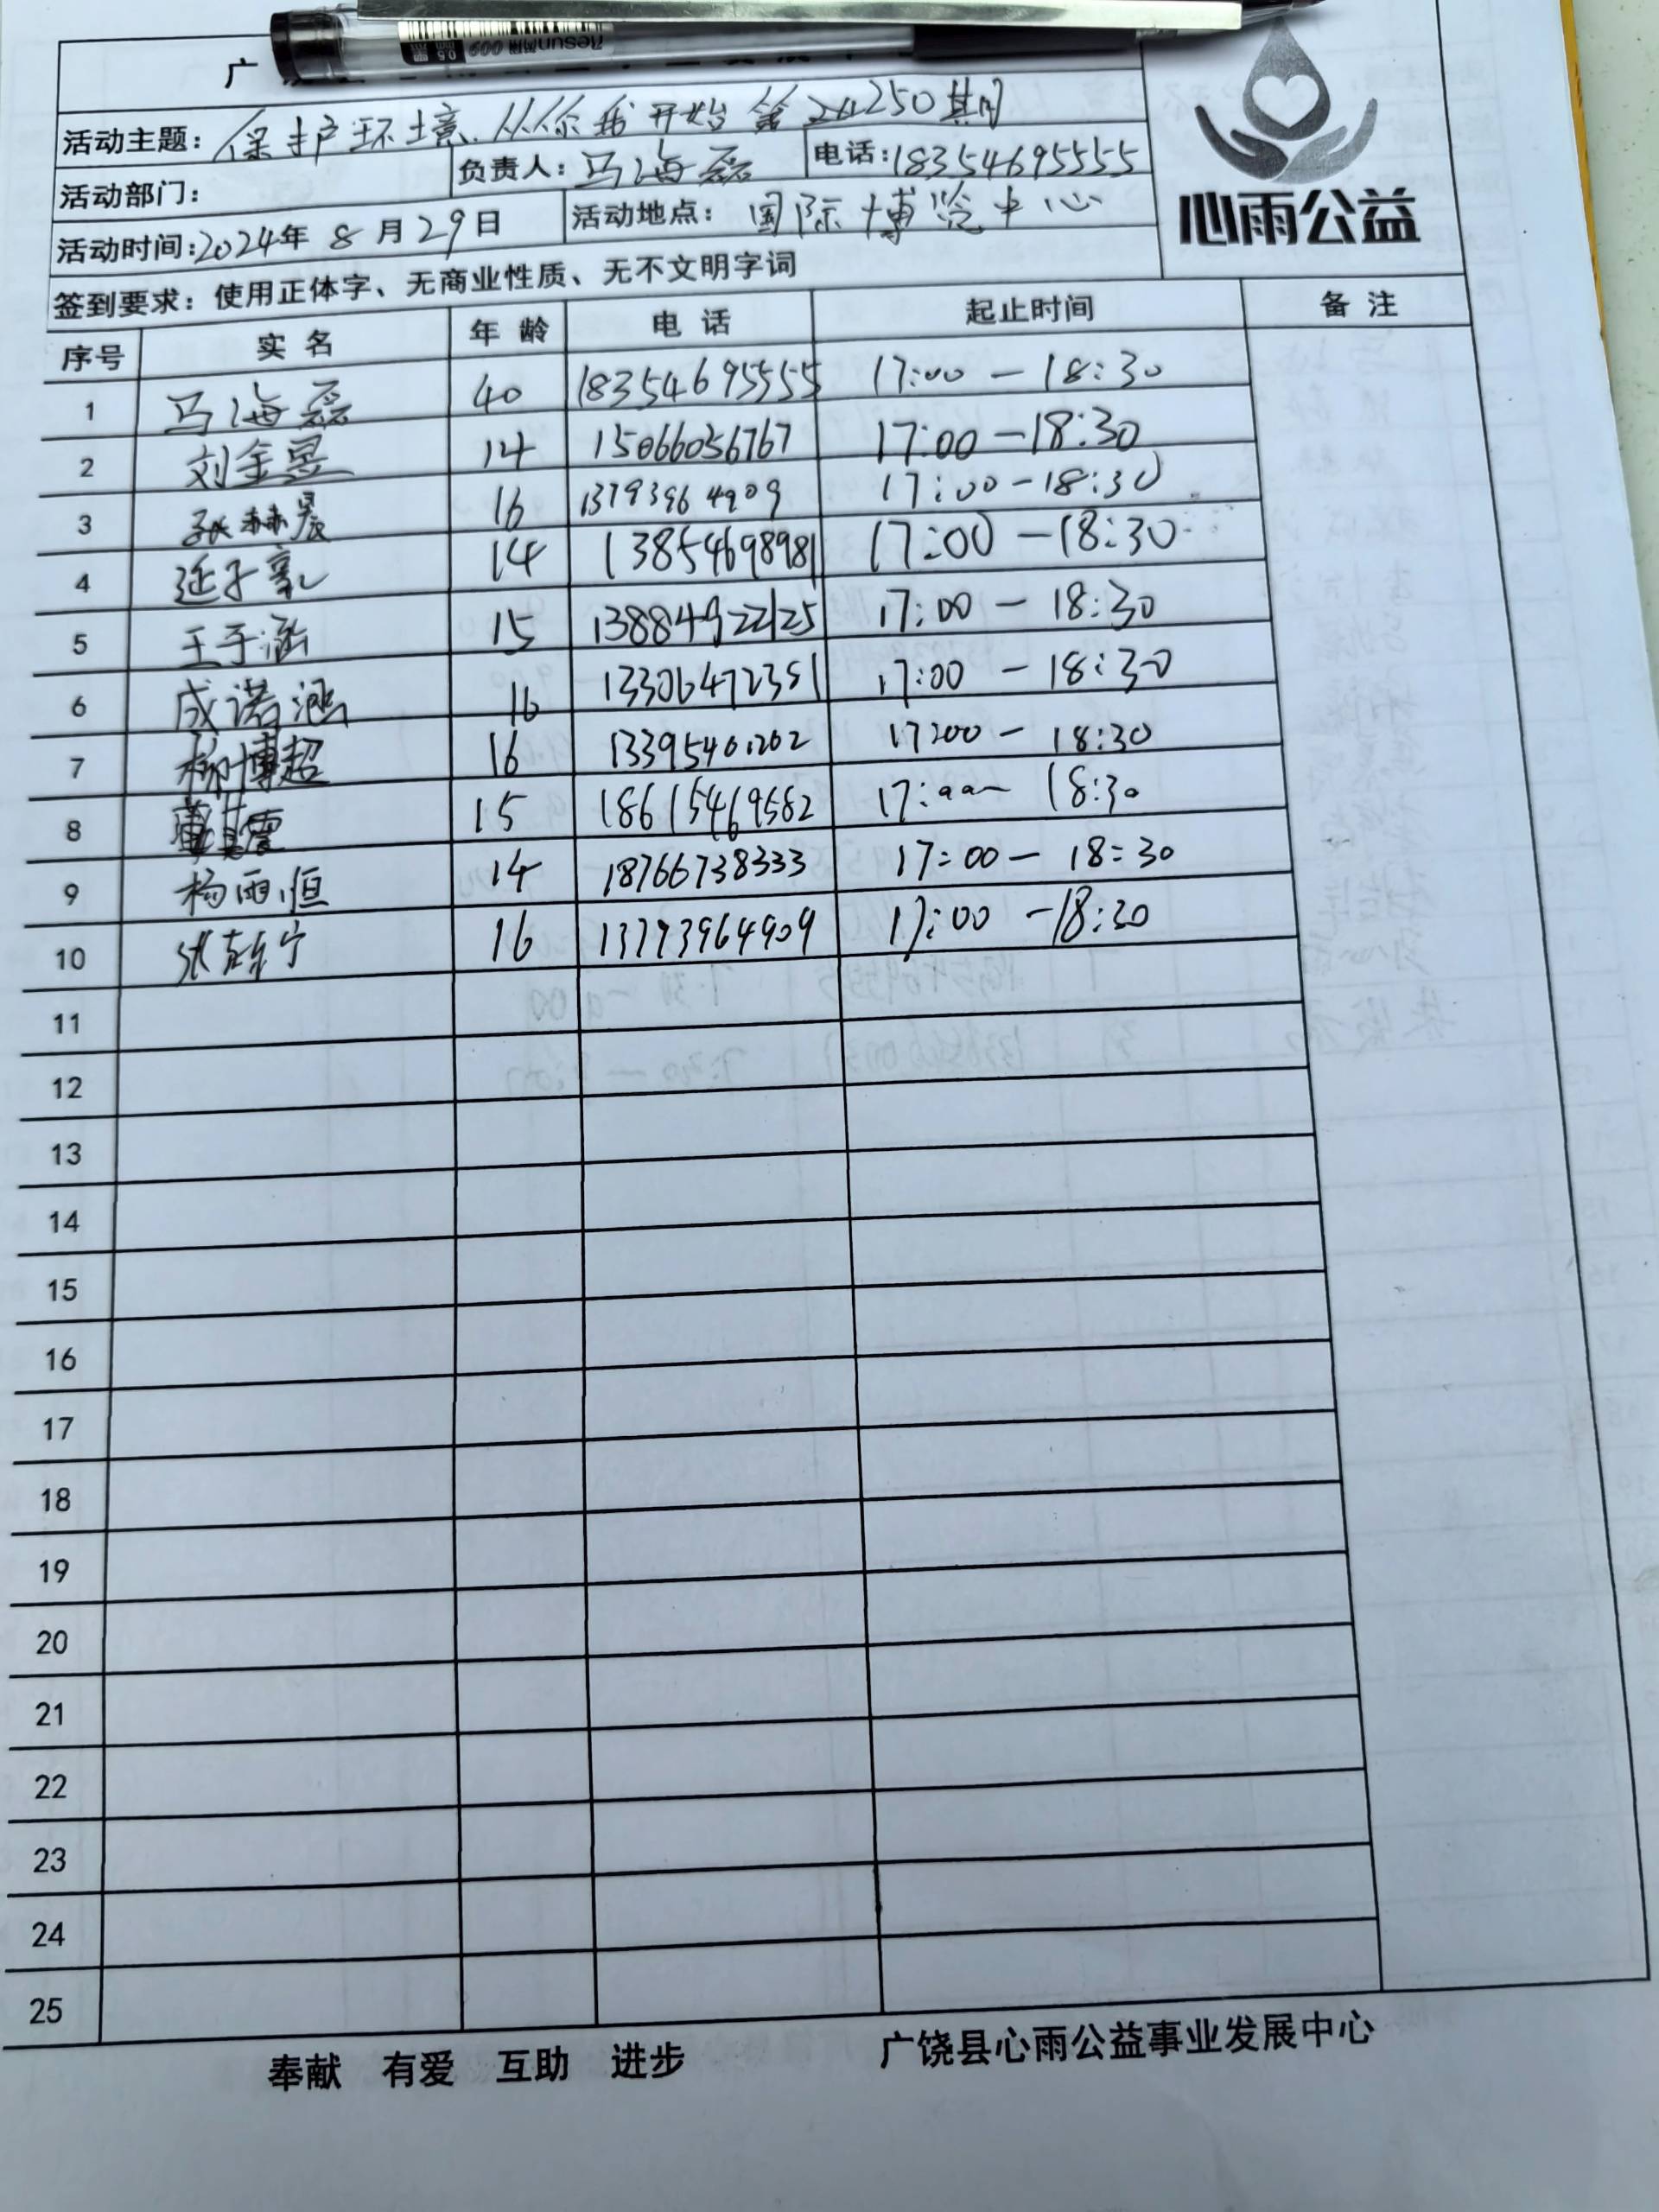 广
活动主题：保护环境、从你我开始 第 250期
活动部门： 负责人：马海磊 电话：18354695555
活动时间：2024年 8 月 29日 活动地点：国际博览中心
心雨公益
签到要求：使用正体字、无商业性质、无不文明字词
序号 实名 年龄 电话 起止时间 备注
1 马海磊 40 18354695555 17:00 — 18:30
2 刘金昱 14 15066056767 17:00 — 18:30
3 赫晨 16 13793964909 17:00 - 18:30
4 延子豪 14 13854698981 17:00 — 18:30
5 王子涵 15 13884922125 17:00 — 18:30
6 成诺涵 16 13306472351 17:00 — 18:30
7 柳博超 16 13395461202 17:00 — 18:30
8 震 15 18615469582 17:00 — 18:30
9 杨雨恒 14 18766738333 17:00 — 18:30
10 宁 16 13793964909 17:00 — 18:30
11
12
13
14
15
16
17
18
19
20
21
22
23
24
25
奉献 有爱 互助 进步 广饶县心雨公益事业发展中心